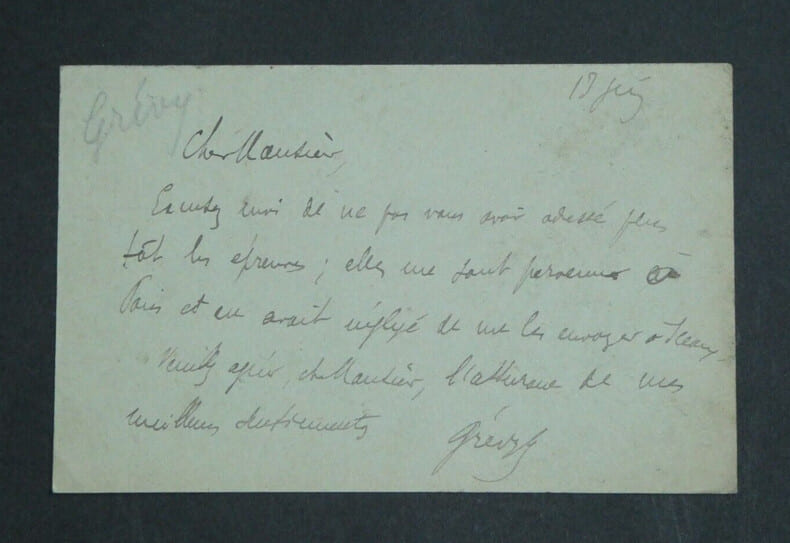 Grévy
18 juin
Cher Monsieur,
Excusez moi de ne pas vous avoir adressé plus
tôt les épreuves ; elles me sont parvenues à
Paris et on avait négligé de me les envoyer à
Veuillez agréer, cher Monsieur, l'assurance de mes
meilleurs sentiments
Grévy